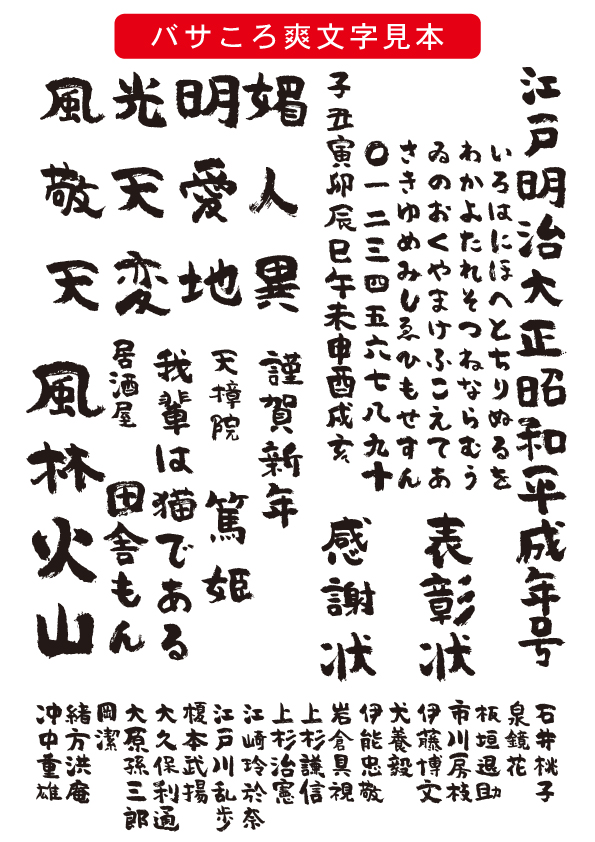 バサころ爽文字見本
江戸明治大正昭和平成年号
いろはにほへとちりぬるを
わかよたれそつねならむう
ゐのおくやまけふこえてあ
さきゆめみしゑひもせすん
〇一二三四五六七八九十
子丑寅卯辰巳午未申酉戌亥
表彰状
感謝状
媚人異
明愛地
光天変
風敬天
謹賀新年
天樟院
篤姫
我輩は猫である
居酒屋
田舎もん
風林火山
石井桃子
泉鏡花
板垣退助
市川房枝
伊藤博文
犬養毅
伊能忠敬
岩倉具視
上杉謙信
上杉治憲
江崎玲於奈
江戸川乱歩
榎本武揚
大久保利通
大原孫三郎
岡潔
緒方洪庵
沖中重雄